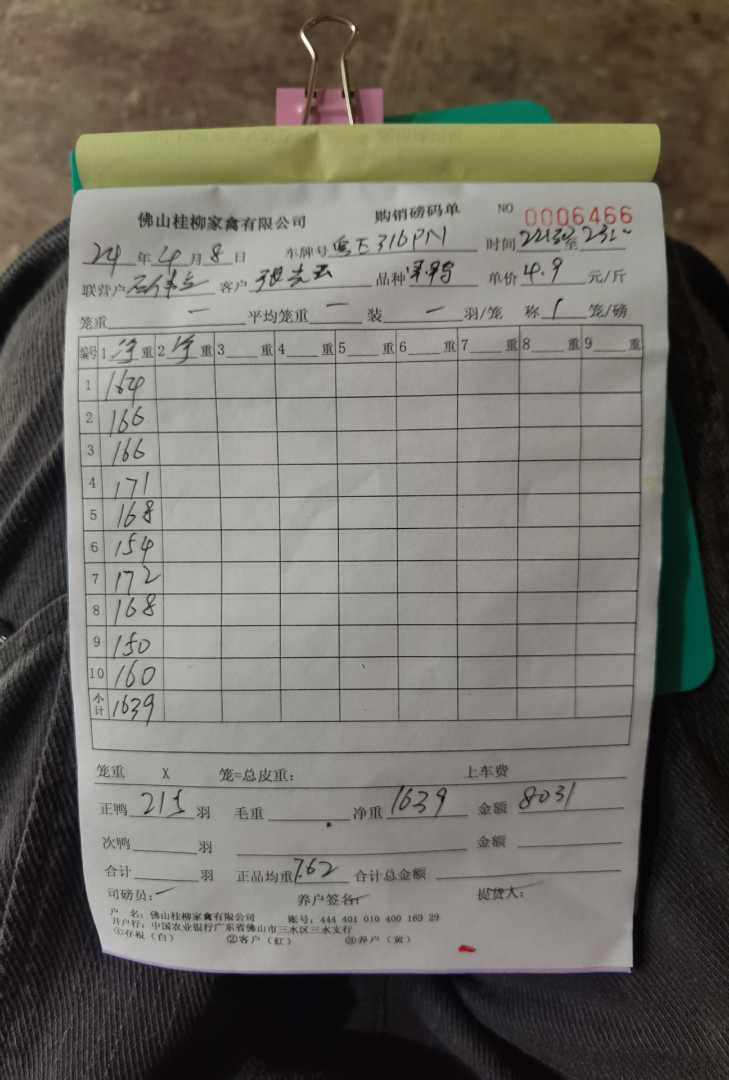 佛山桂柳家禽有限公司 购销磅码单 NO 0006466
24年4月8日 车牌号粤E316PN 时间22:30至23:10
联营户 客户 品种 单价4.9元/斤
笼重— 平均笼重— 装—羽/笼 称1笼/磅
编号 1净重 2净重 3重 4重 5重 6重 7重 8重 9重
1 164
2 166
3 166
4 171
5 168
6 154
7 172
8 168
9 150
10 160
小计 1639
笼重 X 笼=总皮重: 上车费
正鸭215羽 毛重 净重1639 金额8031
次鸭 羽 金额
合计 羽 正品均重7.62 合计总金额
司磅员: 养户签名: 提货人:
户 名: 佛山桂柳家禽有限公司 账号: 444 401 010 400 169 29
开户行: 中国农业银行广东省佛山市三水区三水支行
①存根(白) ②客户(红) ③养户(黄)